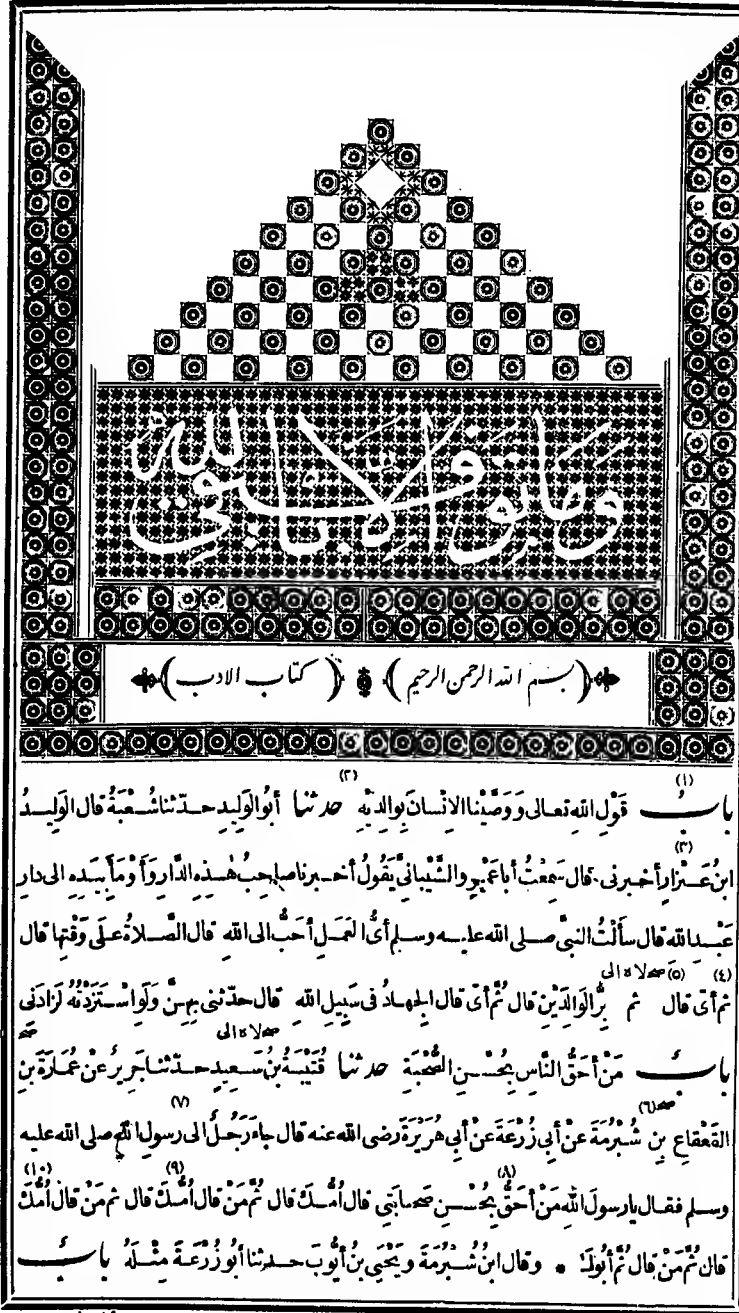 وما توفيقي الا بالله
(بسم الله الرحمن الرحيم) (كتاب الادب)
(١) (٢)
بابُ قَوْلِ اللهِ تعالى وَوَصَّيْنا الاِنْسانَ بِوالِدَيْهِ حدثنا أبُو الوَلِيدِ حدّثنا شُعْبَةُ قال الوَلِيدُ
(٣)
ابنُ عَيْزارٍ أخبرنى قال سَمِعْتُ أباعَمْرٍو الشَّيْبانِيَّ يَقُولُ أخبرنا صاحِبُ هٰذِهِ الدَّارِ وَأَوْمَأَ بِيَدِهِ الى دارِ
عَبْدِ الله قال سَأَلْتُ النبيَّ صلى الله عليه وسلم أىُّ العَمَلِ أحَبُّ الى اللهِ قال الصَّلاةُ عَلَى وَقْتِها قال
(٤) (٥) صح لاة الى
ثم أىّ قال ثم بِرُّ الوَالِدَيْنِ قال ثُمَّ أىّ قال الجِهادُ فى سَبِيلِ اللهِ قال حدّثنى بِهِنَّ وَلَوِ اسْتَزَدْتُهُ لَزادَنِى
صح لاة الى
بابُ مَنْ أحَقُّ النَّاسِ بِحُسْنِ الصُّحْبَةِ حدثنا قُتَيْبَةُ بنُ سَعِيدٍ حدّثنا جَرِيرٌ عنْ عُمَارَةَ بنِ
(٦) (٧)
القَعْقاعِ بنِ شُبْرُمَةَ عَنْ أبى زُرْعَةَ عَنْ أبى هُرَيْرَةَ رضى الله عنه قال جاءَ رَجُلٌ الى رسولِ اللهِ صلى الله عليه
(٨) (٩) (١٠)
وسلم فقال يارسولَ اللهِ مَنْ أحَقُّ بِحُسْنِ صَحابَتِى قال أُمُّكَ قال ثُمَّ مَنْ قال أُمُّكَ قال ثم مَنْ قال أُمُّكَ
قال ثُمَّ مَنْ قال ثُمَّ أبُوكَ * وقال ابنُ شُبْرُمَةَ ويَحْيَى بنُ أيُّوبَ حدثنا أبُو زُرْعَةَ مِثْلَهُ بابُ